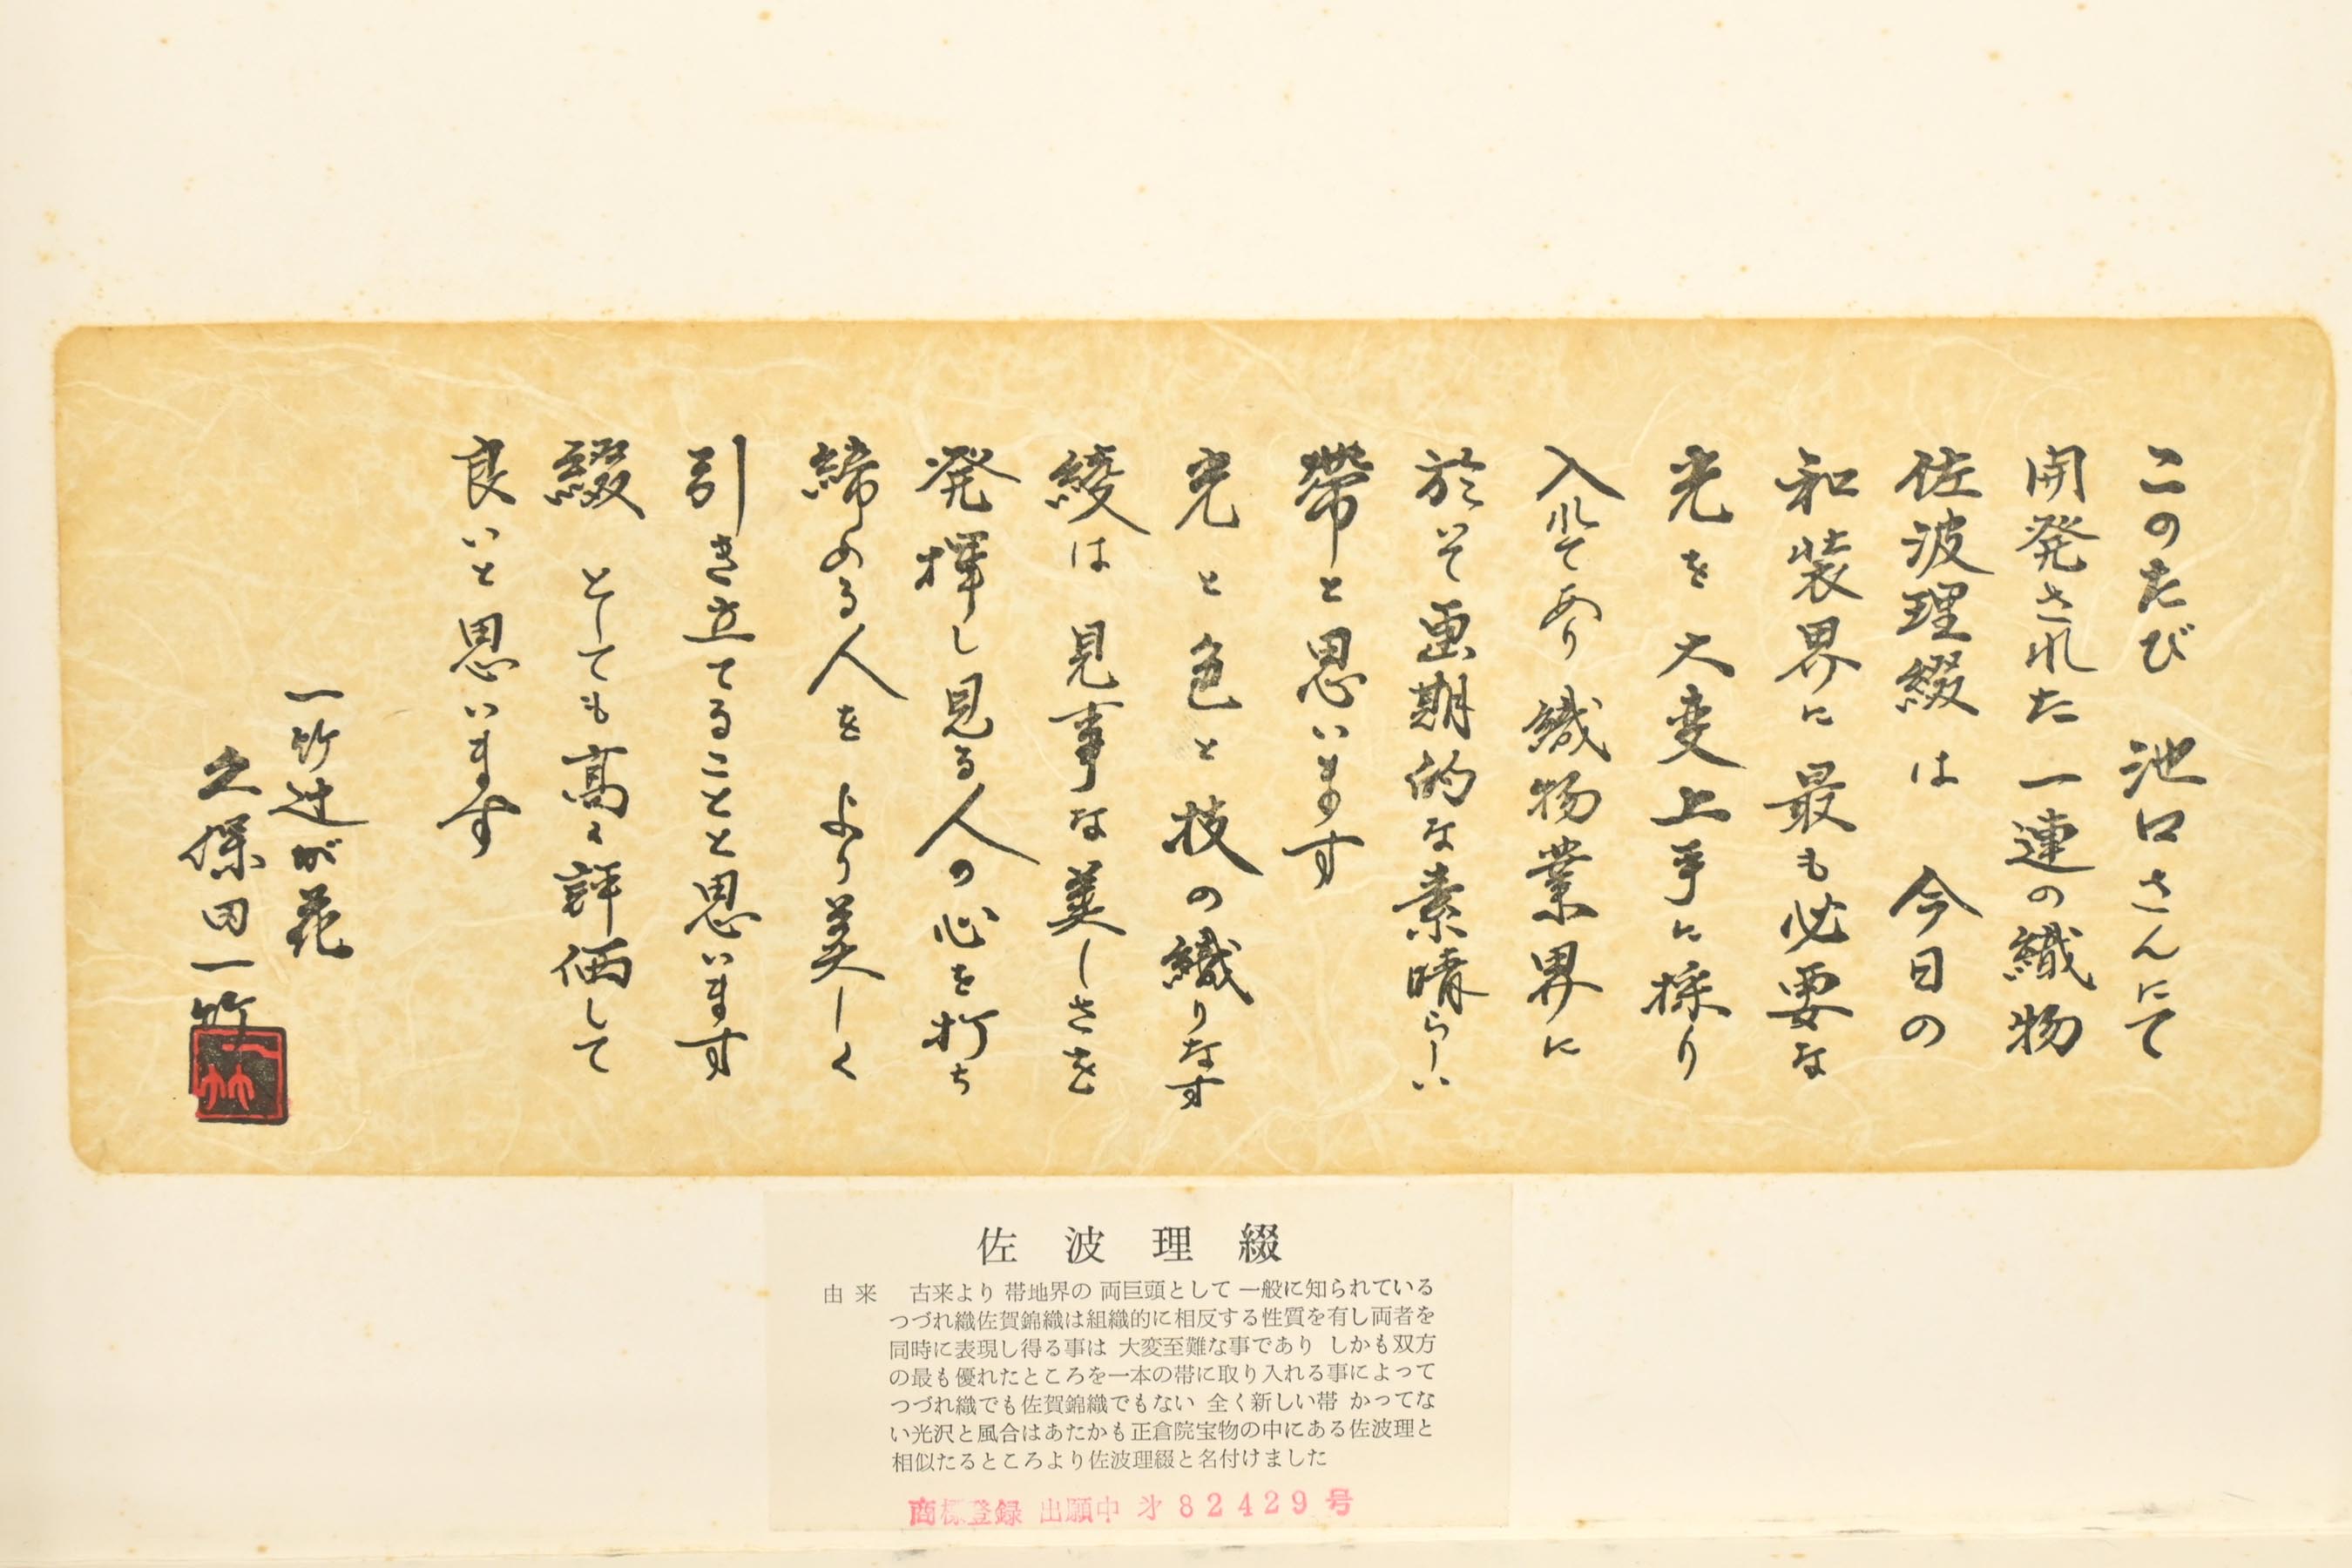 このたび 池口さんにて
開発された一連の織物
佐波理綴は 今日の
和装界に最も必要な
光を大変上手に採り
入れてあり織物業界に
於いて画期的な素晴らしい
帯と思います
光と色と技の織りなす
綾は見事な美しさを
発揮し見る人の心を打ち
締める人をより美しく
引き立てることと思います
綴としても高く評価して
良いと思います
一竹辻が花
久保田一竹
一竹
佐波理綴
由来 古来より 帯地界の 両巨頭として 一般に知られている
つづれ織佐賀錦織は組織的に相反する性質を有し両者を
同時に表現し得る事は 大変至難な事であり しかも双方
の最も優れたところを一本の帯に取り入れる事によって
つづれ織でも佐賀錦織でもない 全く新しい帯 かってな
い光沢と風合はあたかも正倉院宝物の中にある佐波理と
相似たるところより佐波理綴と名付けました
商標登録 出願中 㐧82429号